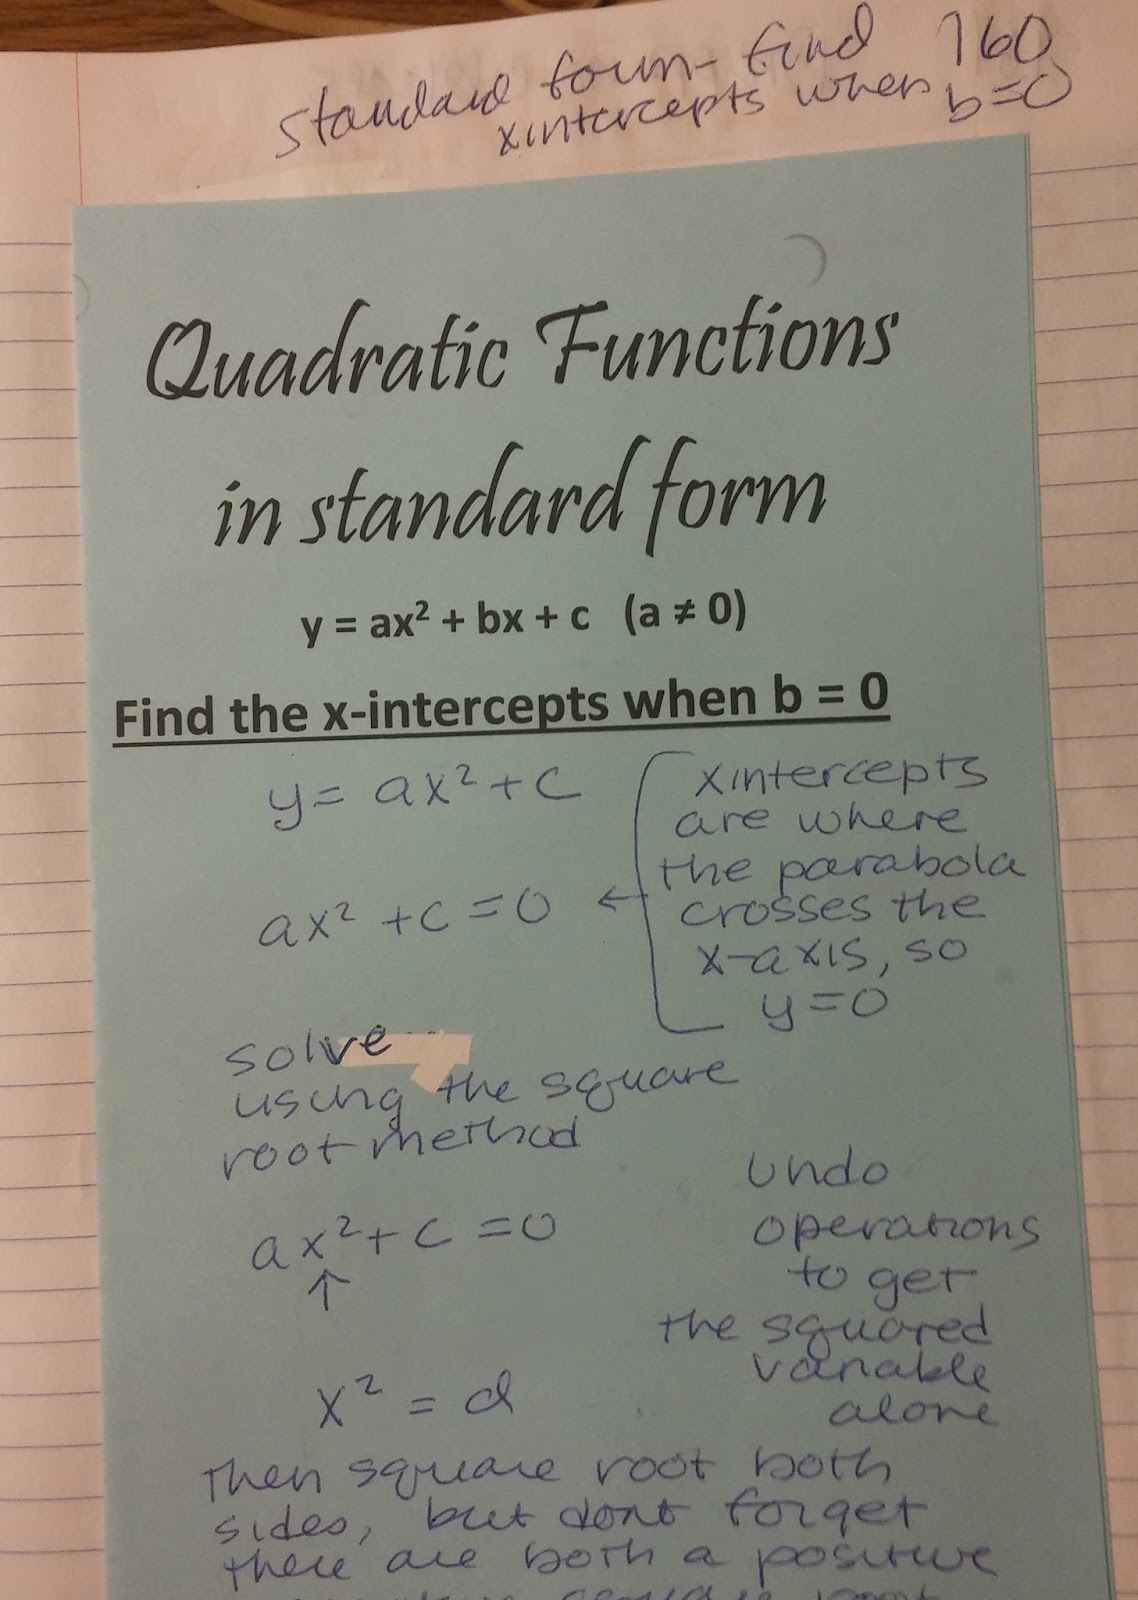 standard form - find 160
xintercepts when b=0
Quadratic Functions
in standard form
y = ax² + bx + c (a ≠ 0)
Find the x-intercepts when b = 0
y = ax² + c
ax² + c = 0 ←
xintercepts
are where
the parabola
crosses the
x-axis, so
y = 0
solve
using the square
root method
ax² + c = 0
↑
undo
operations
to get
the squared
variable
alone
x² = d
Then square root both
sides, but dont forget
there are both a positive
square root